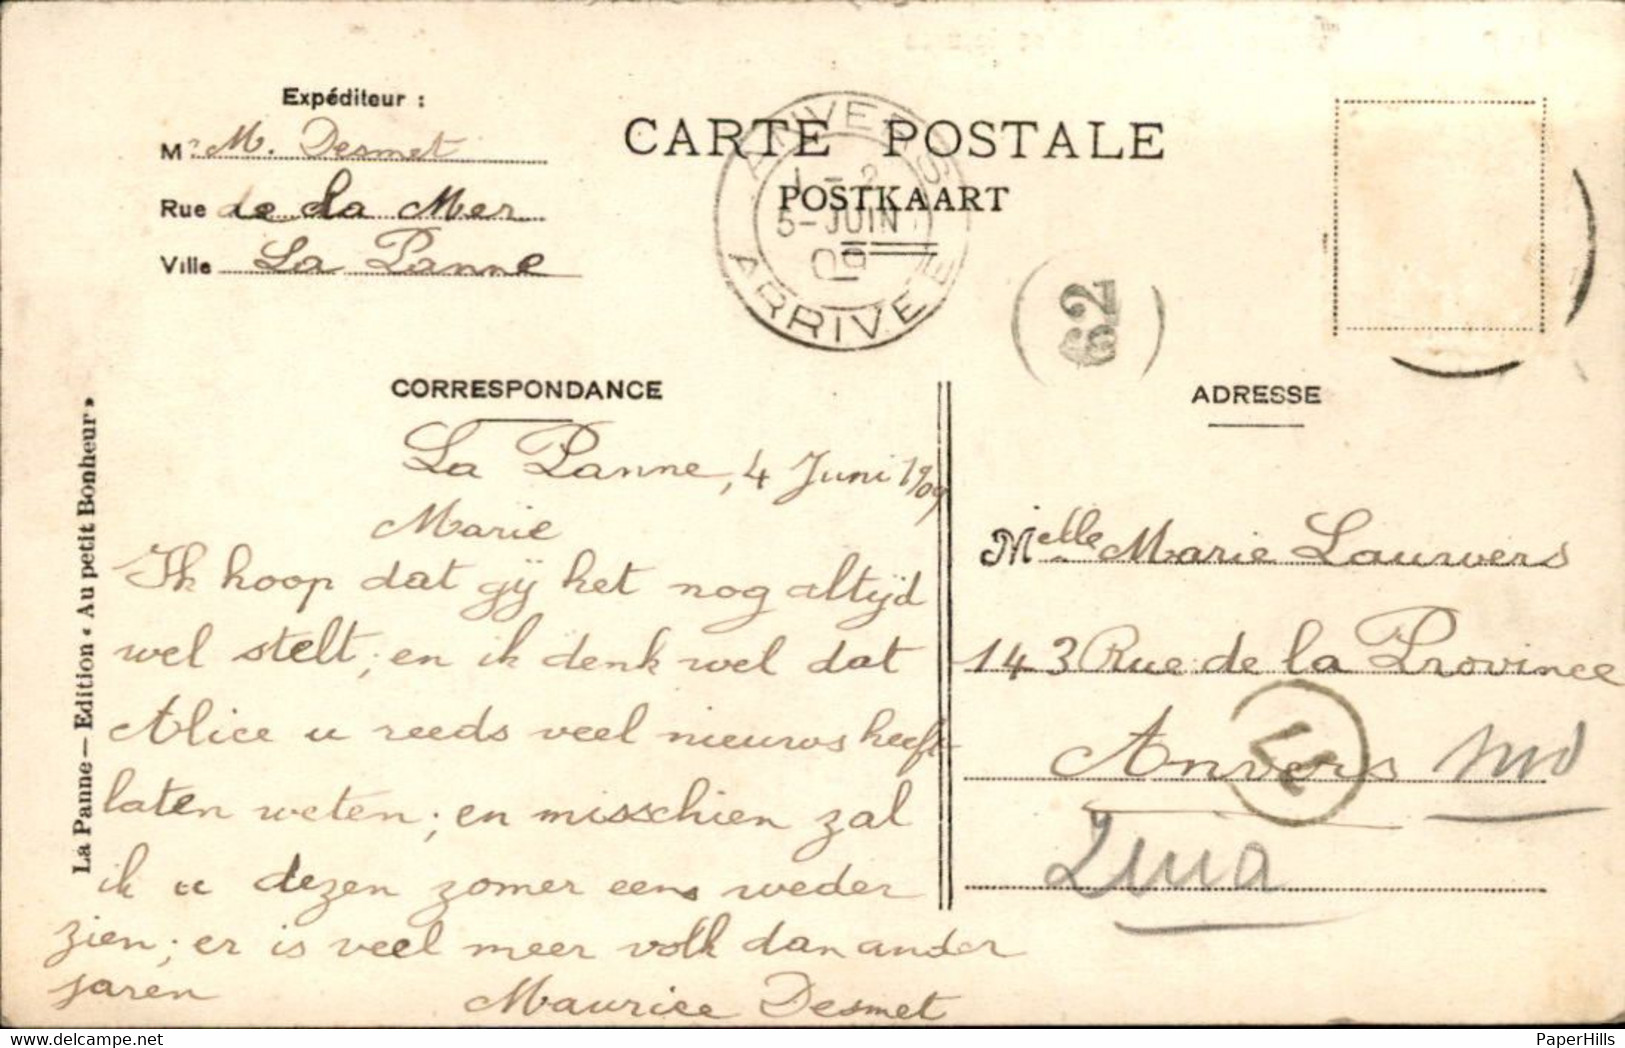 Expéditeur :
Mr M. Desmet
Rue de La Mer
Ville La Panne
CARTE POSTALE
POSTKAART
ANVERS
1-2
5-JUIN
09
ARRIVEE
62
CORRESPONDANCE
La Panne, 4 Juni 1909
Marie
Ik hoop dat gÿ het nog altÿd
wel stelt; en ik denk wel dat
Alice u reeds veel nieuws heeft
laten weten; en misschien zal
ik u dezen zomer eens weder
zien; er is veel meer volk dan ander
jaren
Maurice Desmet
La Panne — Edition « Au petit Bonheur »
ADRESSE
Melle Marie Lauwers
143 Rue de la Province
Anvers
PaperHills